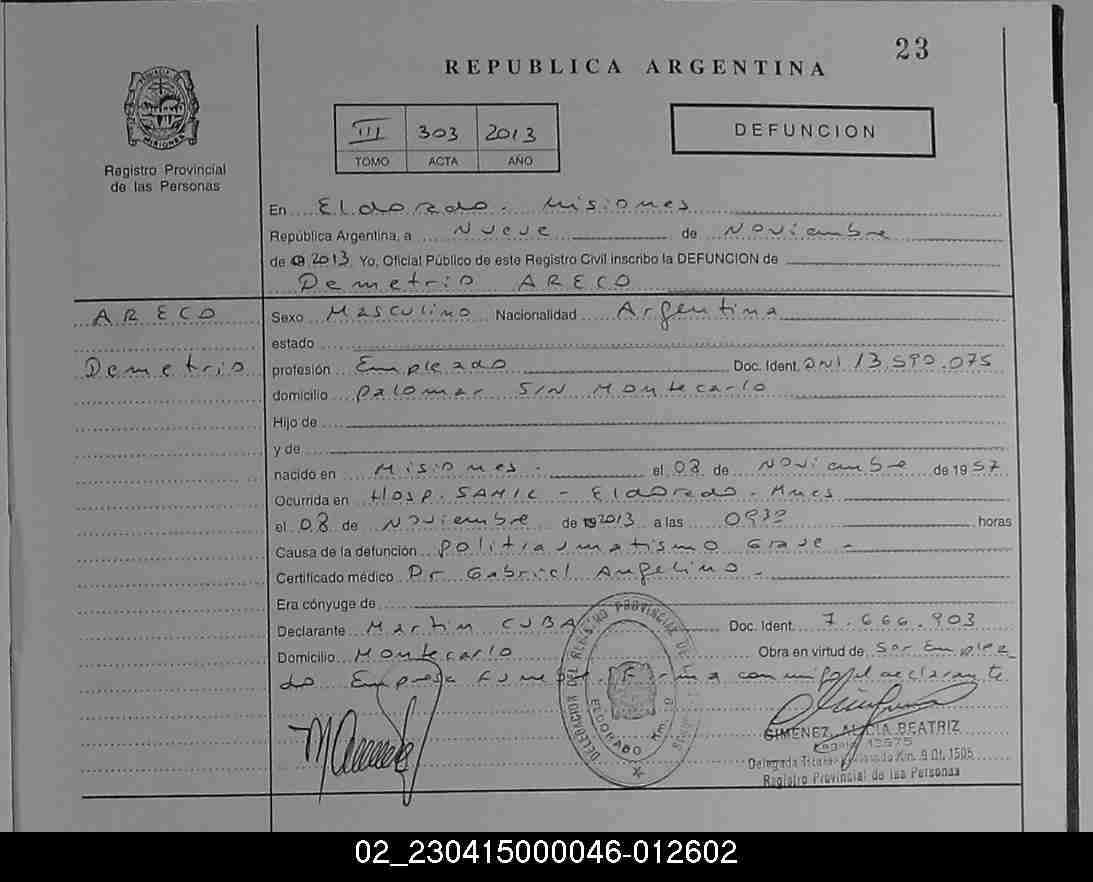 23
REPUBLICA ARGENTINA
PROVINCIA DE MISIONES
Registro Provincial
de las Personas
III 303 2013
TOMO ACTA AÑO
DEFUNCION
En Eldorado. Misiones
República Argentina, a Nueve de Noviembre
de 2013 Yo, Oficial Público de este Registro Civil inscribo la DEFUNCION de
Demetrio ARECO
ARECO
Demetrio
Sexo Masculino Nacionalidad Argentina
estado
profesión Empleado Doc. Ident. DNI 13.590.075
domicilio Palomar S/N Montecarlo
Hijo de
y de
nacido en Misiones. el 08 de Noviembre de 1957
Ocurrida en Hosp. SAMIC - Eldorado. Mnes
el 08 de Noviembre de 2013 a las 0930 horas
Causa de la defunción Politraumatismo Grave -
Certificado médico Dr Gabriel Angelino -
Era cónyuge de
Declarante Martin CUBA Doc. Ident. 7.666.903
Domicilio Montecarlo Obra en virtud de Ser Emplea_
do Empresa Firma conmigo el declarante
DELEGACION DEL REGISTRO PROVINCIAL DE LAS
ELDORADO Km. 9
GIMENEZ, ALICIA BEATRIZ
Delegada Titular Eldorado Km. 9 Of. 1505
Registro Provincial de las Personas
02_230415000046-012602